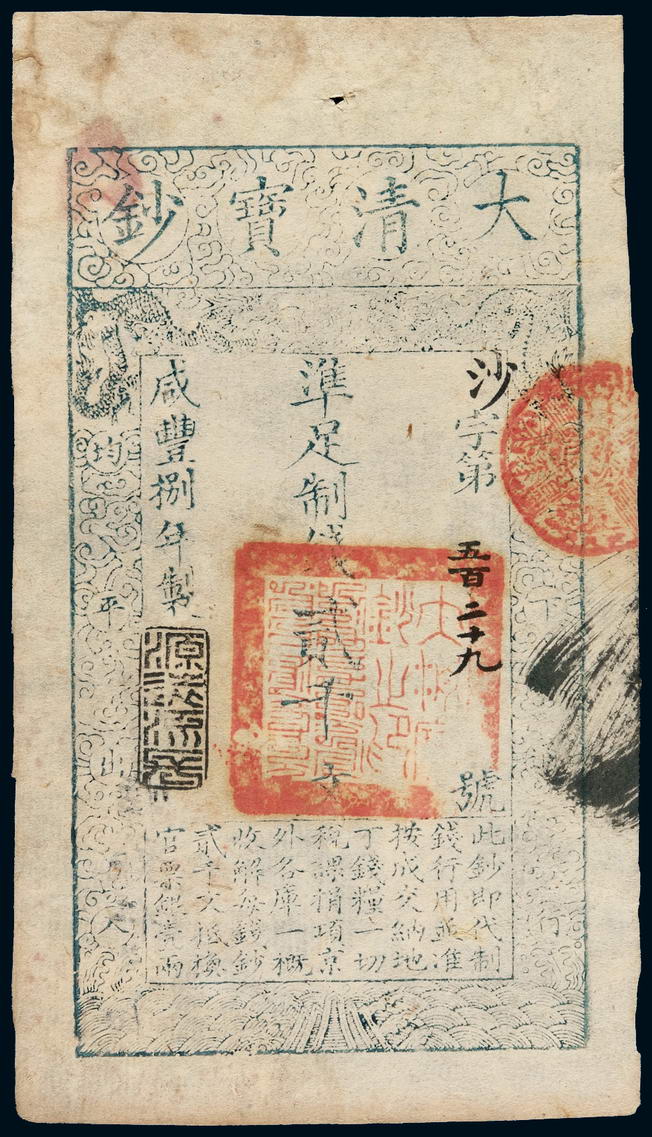 大清寶鈔
沙字第五百二十九號
準足制錢貳千文
咸豐捌年製
源遠流長
均平
此鈔即代制
錢行用並准
按成交納地
丁錢糧一切
稅課捐項京
外各庫一概
收解每錢鈔
貳千文抵換
官票銀壹兩